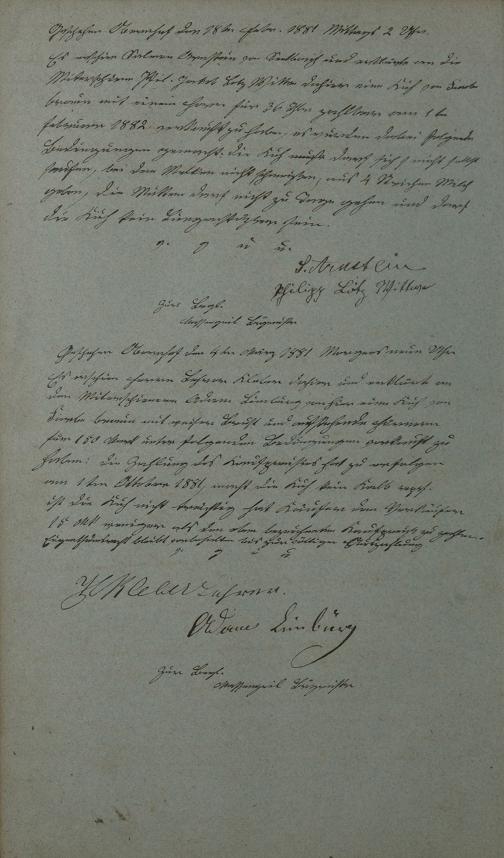 Geschehen Obernhof den 18ten Febr. 1881 Mittags 2 Uhr.
Es erschien Salomon Arnstein von Seelbach und erklärte an die
Miterschienene Phil. Jacob Lotz Wittwe dahier eine Kuh von Farbe
braun mit einem Horn für 36 Thlr zahlbar am 1ten
Februar 1882 verkauft zu haben, es wurden dabei folgende
Bedingungen gemacht: die Kuh darf sich nicht selbst
saufen, bei dem Melken nicht schmeißen, aus 4 Strichen Milch
geben, die Mutter darf nicht zu Tage gehen und darf
die Kuh kein sein.
v. g. u. u.
S. Arnstein
Philipp Lötz Wittwe
Zur Begl.
Bürgermeister
Geschehen Obernhof den 4ten März 1881 Morgens neun Uhr
Es erschien Herr Lehrer Kleber dahier und erklärte an
den Miterschienenen Adam Limburg von hier eine Kuh von
Farbe braun mit weißer Brust und Hörnern
für 150 Mark unter folgenden Bedingungen verkauft zu
haben: die Zahlung des Kaufpreises hat zu erfolgen
am 1ten Oktober 1881, macht die Kuh kein Kalb resp.
ist die Kuh nicht trächtig hat Käufer dem Verkäufer
15 Mk weniger als den oben bezeichneten Kaufpreis zu zahlen.
Eigenthumsrecht bleibt vorbehalten bis zur völligen Auszahlung
v. g. u. u.
Kleber Lehrer.
Adam Limburg
Zur Begl.
Bürgermeister